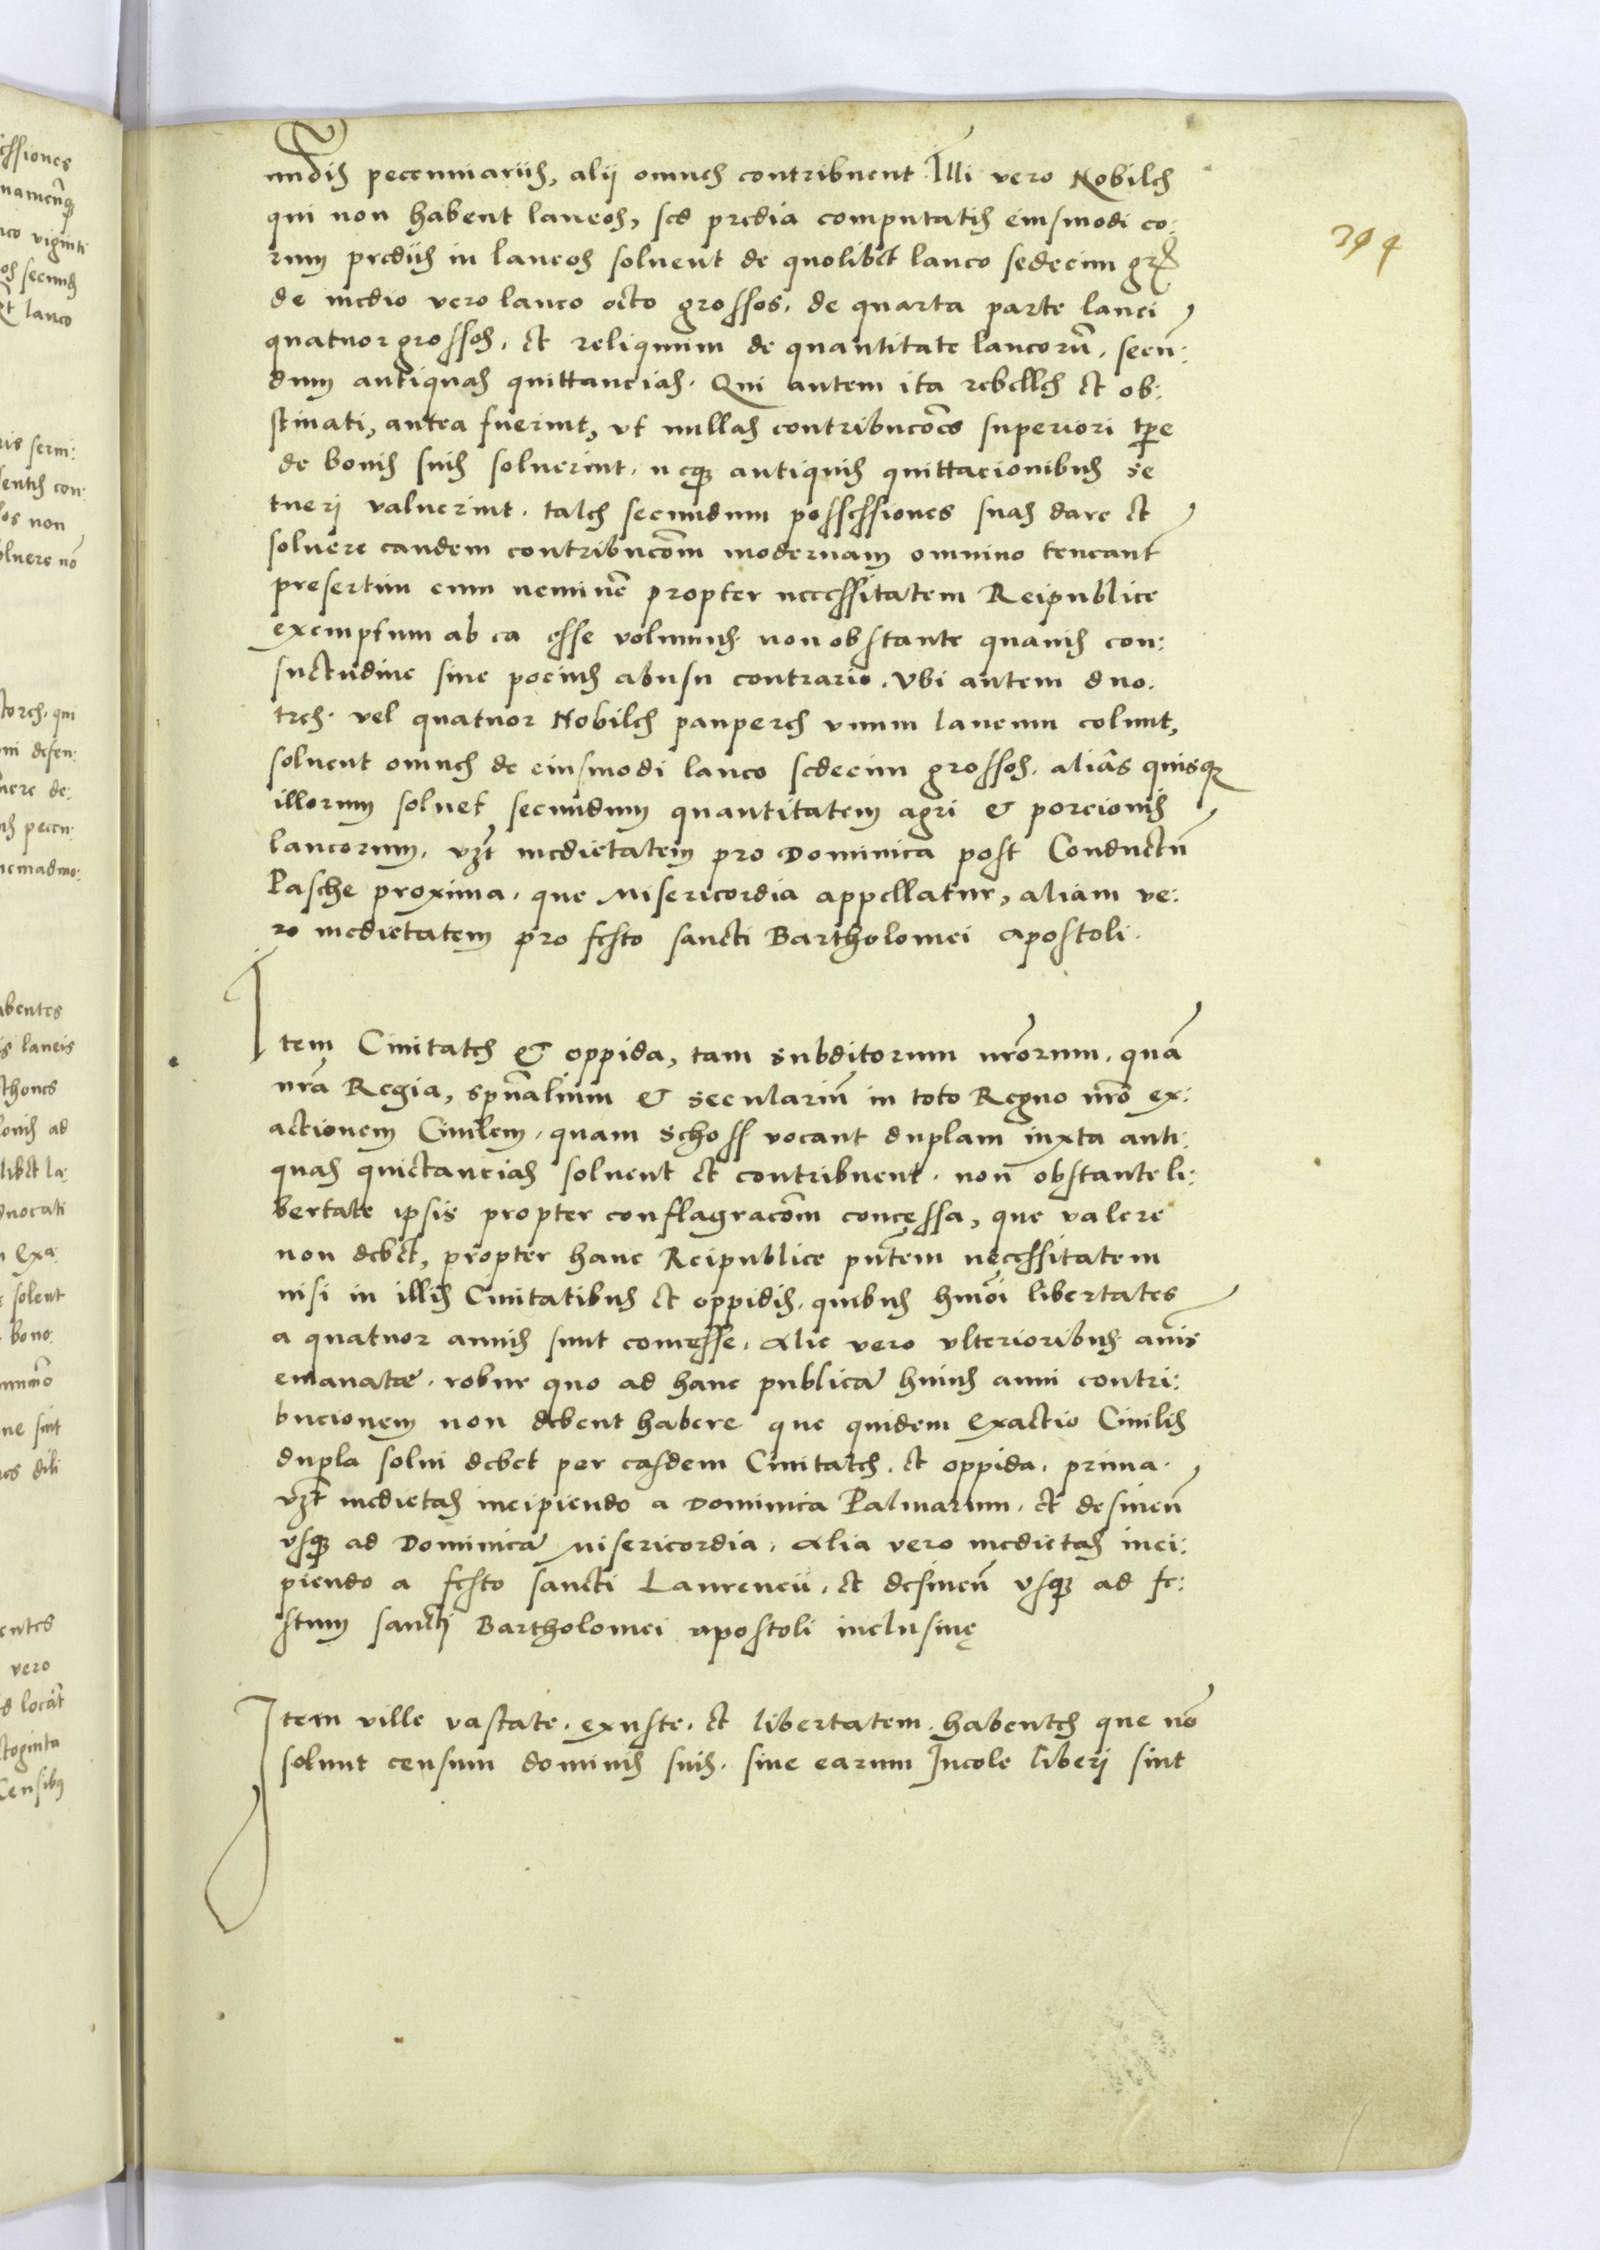 mdis peccuniariis, alij omnes contribuent. Illi vero Nobiles
qui non habent laneos, sed predia computatis eiusmodi eo:
rum prediis in laneos soluent de quolibet laneo sedecim gr
de medio vero laneo octo grossos. de quarta parte lanei
quatuor grossos. et reliquum de quantitate laneorū. secū:
dum antiquas quittancias. Qui autem ita rebelles et ob:
stinati, antea fuerint, vt nullas contribucōes superiori tpe
de bonis suis soluerint. neqȝ antiquis quittacionibus se
tueri valuerint. tales secundum possessiones suas dare et
soluere eandem contribucōm modernam omnino teneant
presertim cum neminē propter necessitatem Reipublice
exemptum ab ea esse volumus non obstante quauis con:
suetudine siue pocius abusu contrario. Vbi autem duo.
tres. vel quatuor Nobiles pauperes vnum laneum colunt,
soluent omnes de eiusmodi laneo sedecim grossos. aliās quisqȝ
illorum soluet secundum quantitatem agri & porcionis
laneorum. vȝt medietatem pro Dominica post Conductū
Pasche proxima. que Misericordia appellatur, aliam ve:
ro medietatem pro festo sancti Bartholomei Apostoli.
Item Ciuitates & oppida, tam subditorum nrōrum. quā
nrā Regia, spūalium & seculariū in toto Regno nrō ex:
actionem Ciuilem. quam Schoss vocant duplam iuxta anti:
quas quictancias soluent et contribuent. non obstante li:
bertate ipsis propter conflagracōm concessa, que valere
non debet, propter hanc Reipublice pntem necessitatem
nisi in illis Ciuitatibus et oppidis. quibus hmōi libertates
a quatuor annis sunt concesse. Alie vero vlterioribus annis
emanatæ. robur quo ad hanc publicā huius anni contri:
bucionem non debent habere que quidem exactio Ciuilis
dupla solui debet per easdem Ciuitates. et oppida. prima.
vȝt medietas incipiendo a Dominica Palmarum. et desinen̄
vsqȝ ad Dominicā Misericordia. Alia vero medietas inci:
piendo a festo sancti Laurencii. et desinen̄ vsqȝ ad fe:
stum sancti Bartholomei apostoli inclusiuę
Item ville vastate. exuste. et libertatem. habentes que nō
soluunt censum dominis suis. siue earum Incole liberi sint